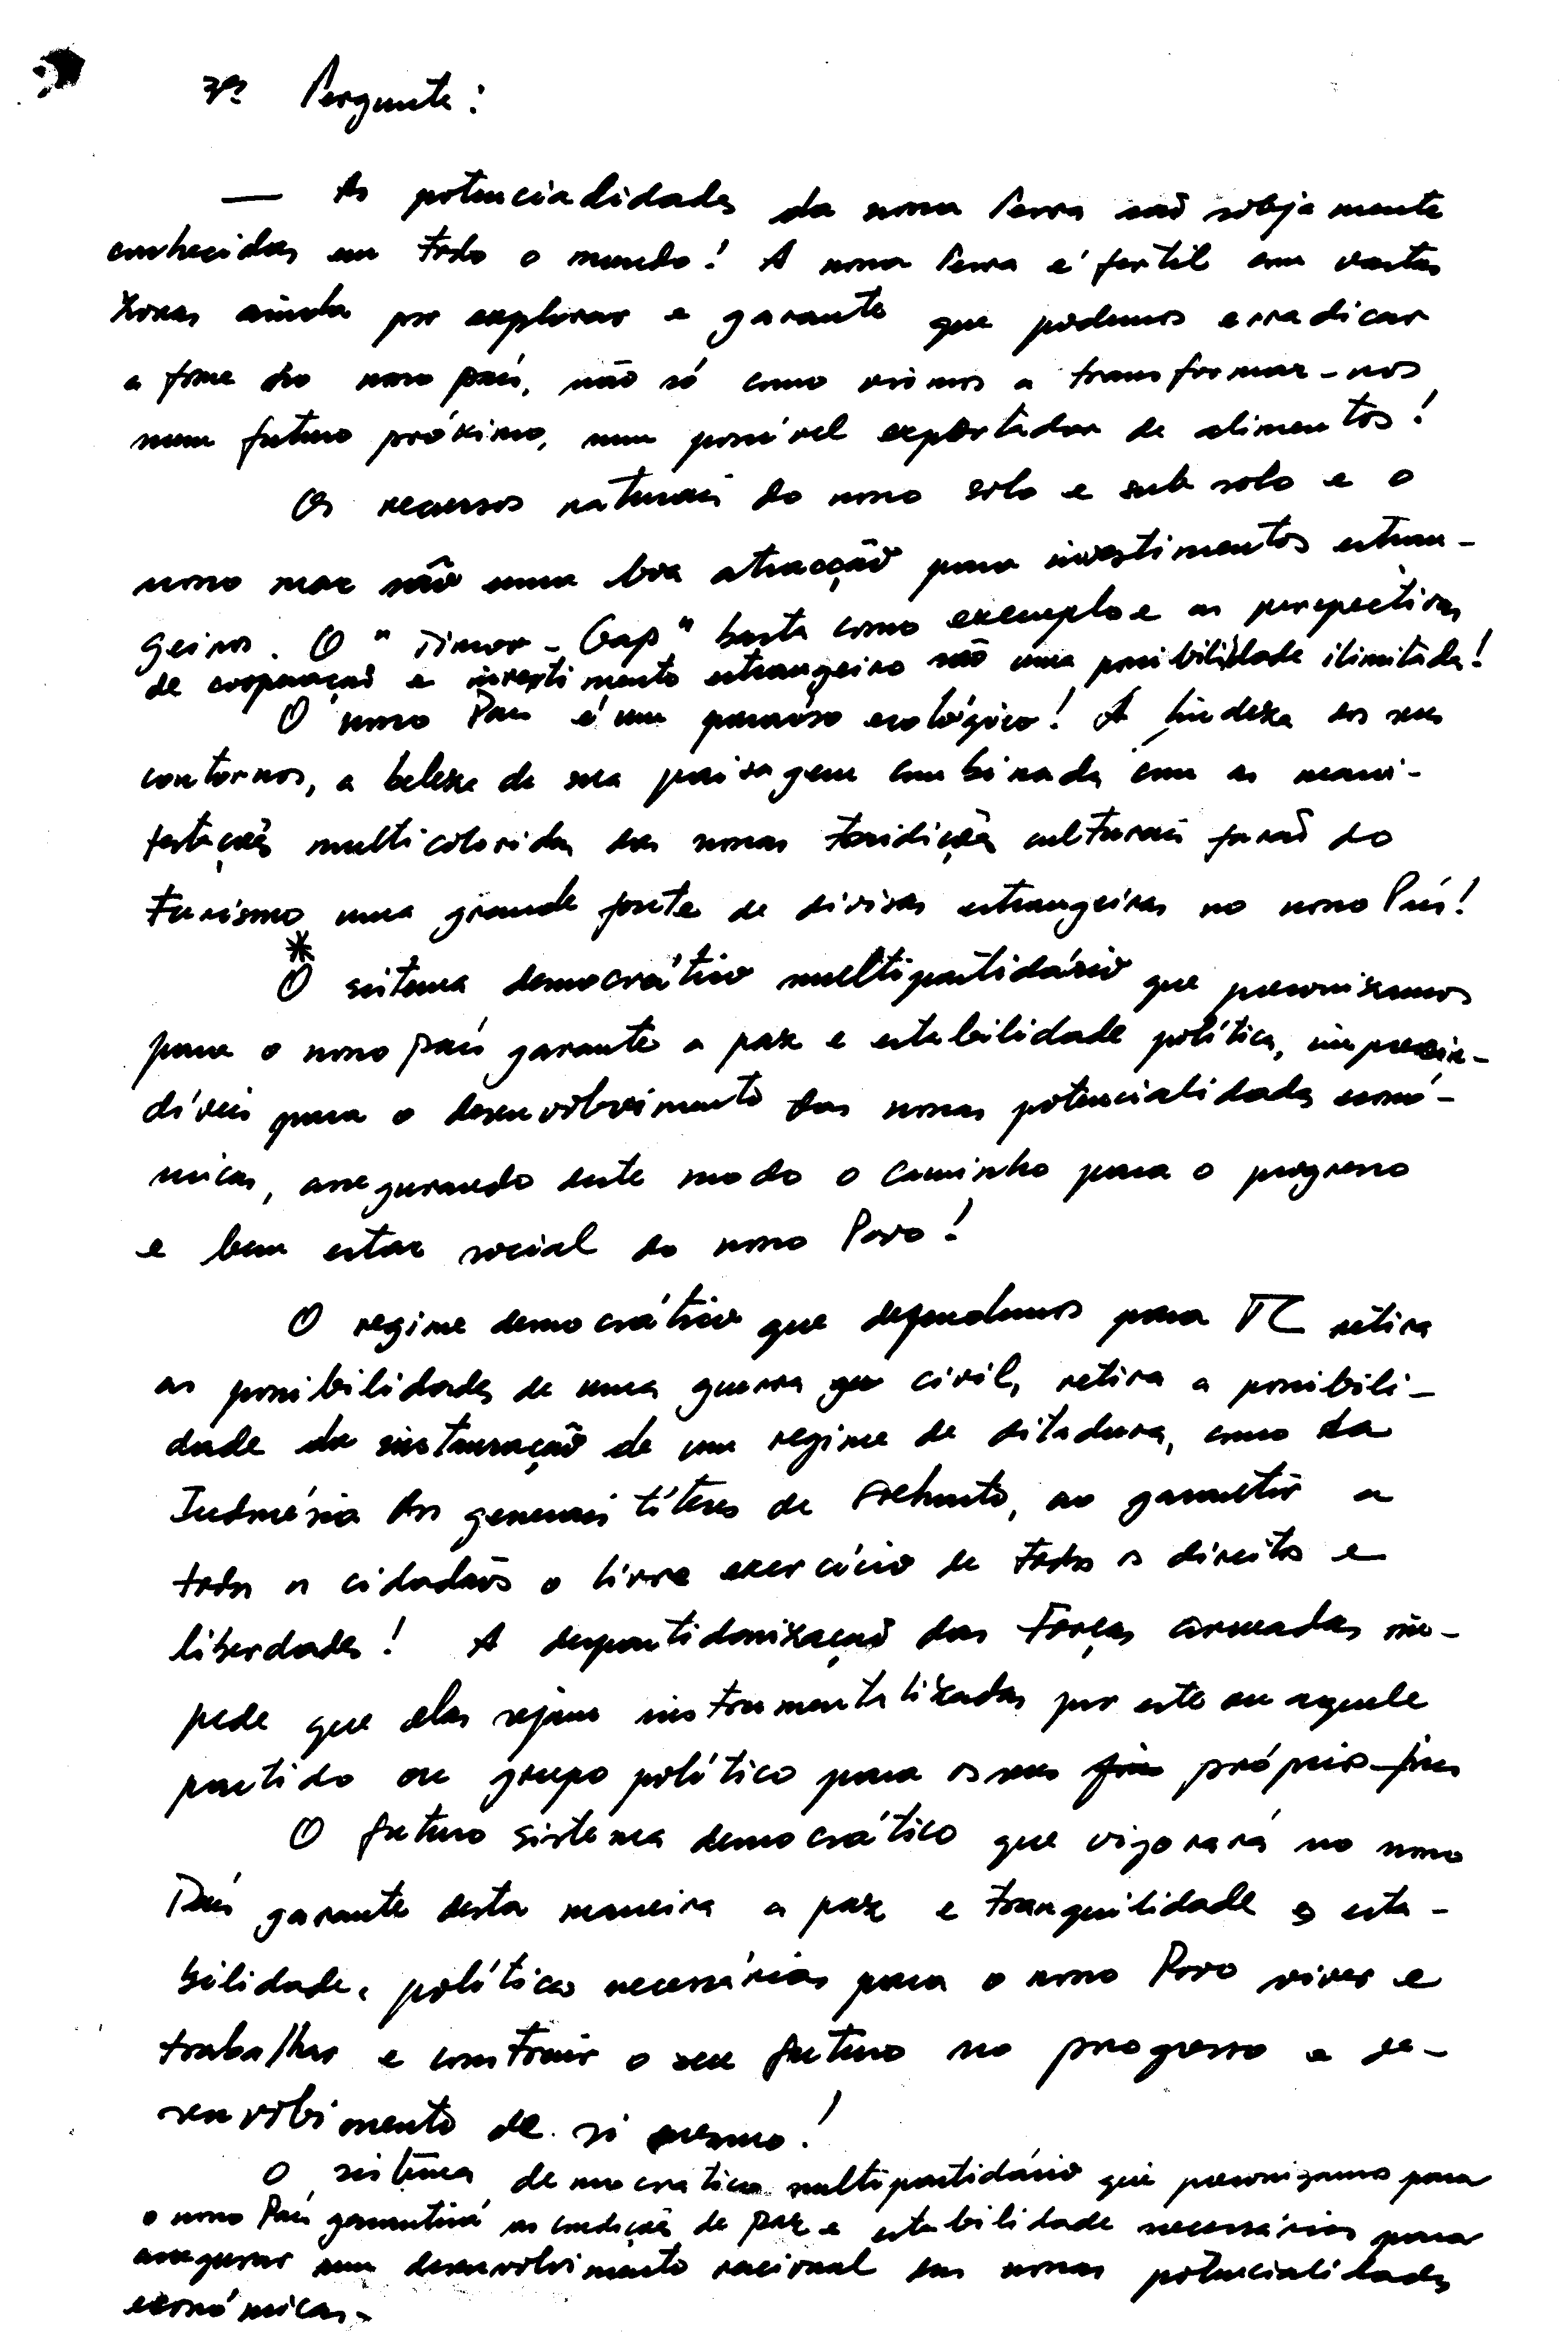 3ª Pergunta:
— As potencialidades da nossa Terra são sobejamente
conhecidas em todo o mundo! A nossa Terra é fertil com vastas
zonas ainda por explorar e garante que podemos erradicar
a fome do nosso país, não só como virmos a transformar-nos
num futuro próximo, num possível exportador de alimentos!
Os recursos naturais do nosso solo e sub solo e o
nosso mar são uma boa atracção para investimentos estran-
geiros. O "Timor-Gap" basta como exemplo e as perspectivas
de cooperação e investimento estrangeiro são uma possibilidade ilimitada!
O nosso País é um paraíso ecológico! A lindeza dos seus
contornos, a beleza de sua paisagem combinada com as mani-
festações multicoloridas das nossas tradições culturais farão do
turismo uma grande fonte de divisas estrangeiras no nosso País!
*
O sistema democrático multipartidário que preconizamos
para o nosso país garante a paz e estabilidade política, imprescin-
díveis para o desenvolvimento das nossas potencialidades econó-
micas, assegurando deste modo o caminho para o progresso
e bem estar social do nosso Povo!
O regime democrático que defendemos para TL retira
as possibilidades de uma guerra civil, retira a possibili-
dade da instauração de um regime de ditadura, como da
Indonésia dos generais títeres de Suharto, ao garantir a
todos os cidadãos o livre exercício de todos os direitos e
liberdades! A despartidarização das Forças armadas im-
pede que elas sejam instrumentalizadas por este ou aquele
partido ou grupo político para os seus próprios fins
O futuro sistema democrático que vigorará no nosso
País garante desta maneira a paz e tranquilidade e esta-
bilidade, política necessárias para o nosso Povo viver e
trabalhar e construir o seu futuro no progresso e de-
senvolvimento de si mesmo!
O sistema democratico multipartidário que preconizamos para
o nosso País garantirá as condições de paz e estabilidade necessárias para
assegurar um desenvolvimento racional das nossas potencialidades
económicas.-